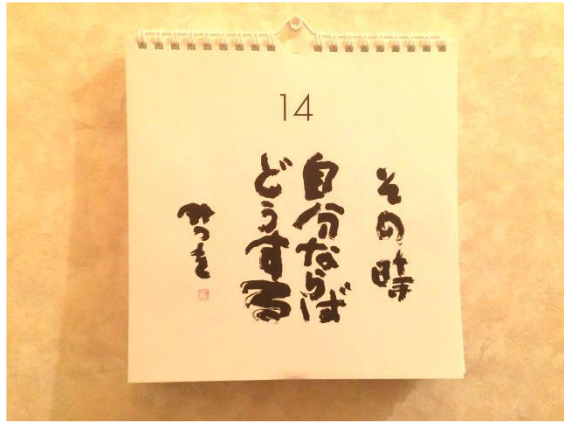 14
その時
自分ならば
どうする
みつを